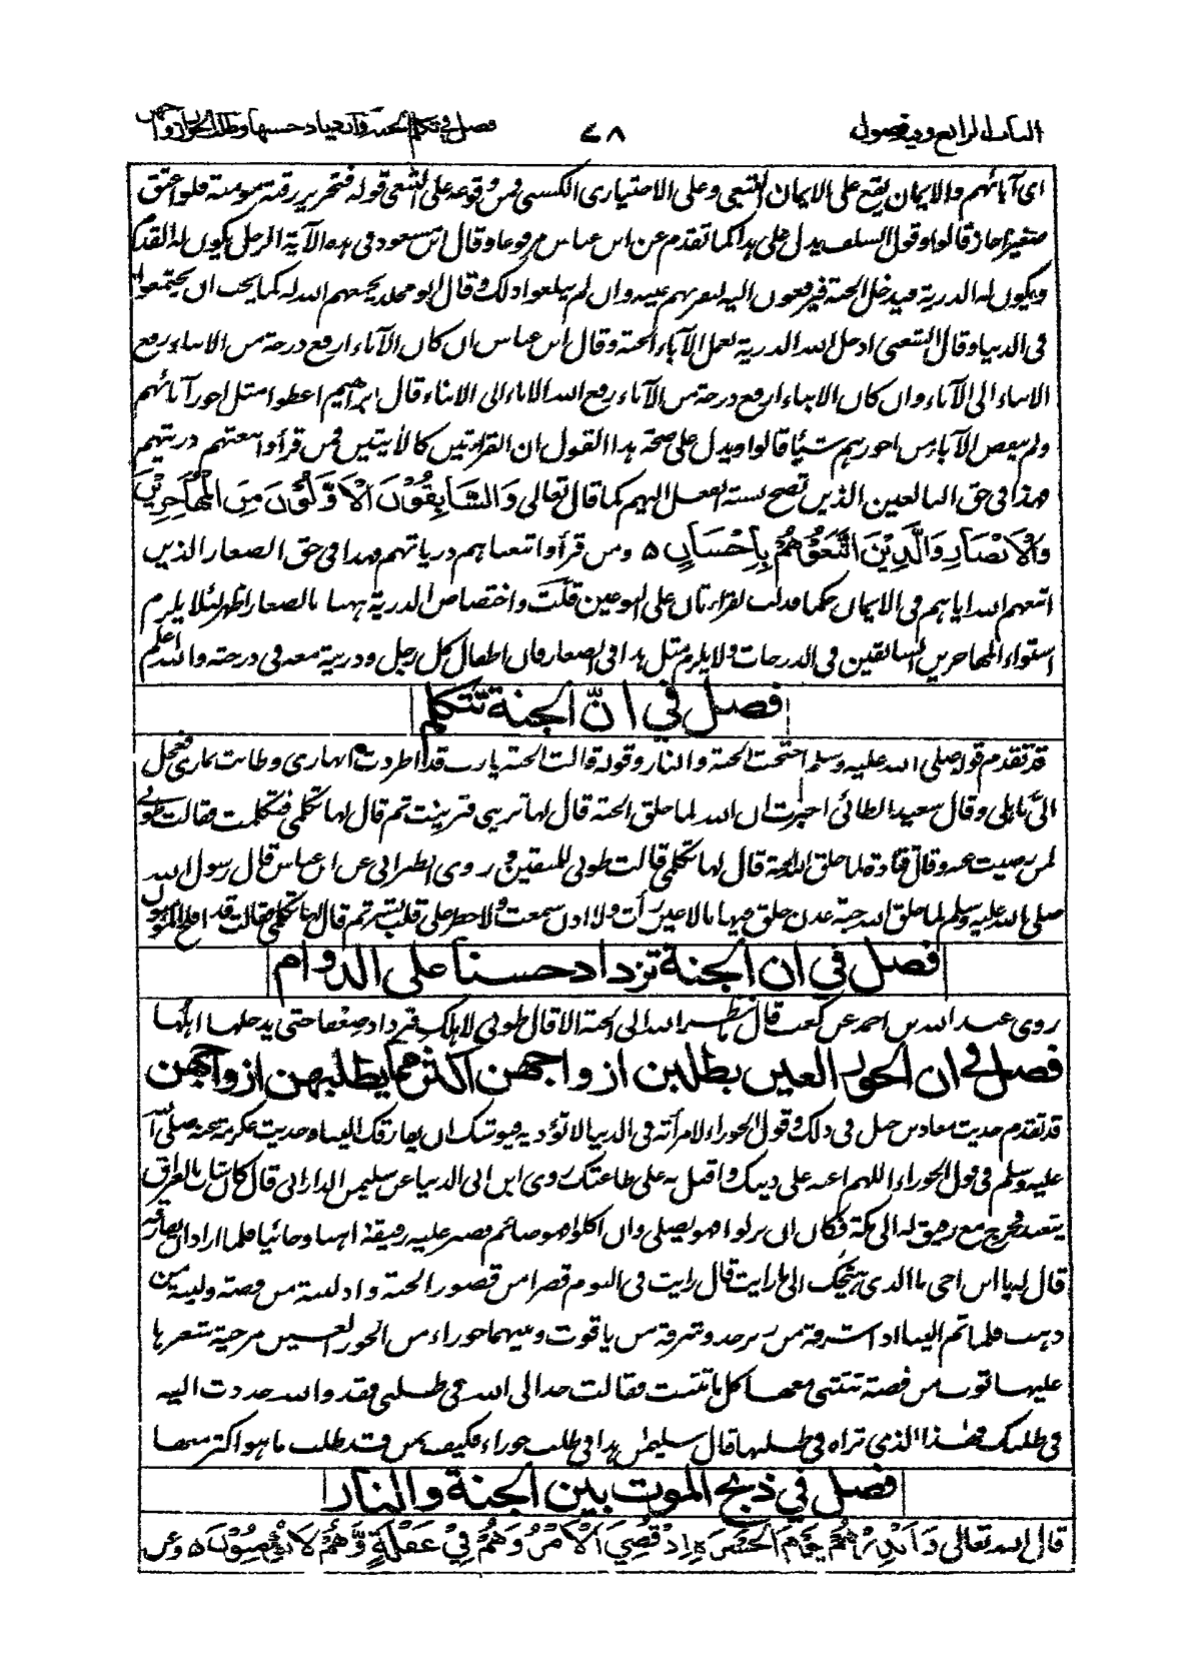 الباب الرابع وفيه فصول ٤٨ فصل في تكلم الجنة وازدياد حسنها وطلب الحور أزواجهن
اى آبائهم والايمان يقع على الايمان التبعى وعلى الاختيارى الكسبى فمن وقوعه على التبعى قوله فتحرير رقبة مومنة فلو اعتق
صغيرا جاز قالوا وقول السلف يدل على هذا كما تقدم عن ابن عباس مرفوعا وقال ابن مسعود فى هذه الآية الرجل يكون له القدم
ويكون له الذرية فيدخل الجنة فيرفعون اليه لتقر بهم عينه وان لم يبلغوا ذلك وقال ابو مجلز يجمعهم الله له كما يحب ان يجتمعوا له
فى الدنيا وقال الشعبى ادخل الله الذرية بعمل الآباء الجنة وقال ابن عباس ان كان الآباء ارفع درجة من الابناء رفع
الابناء الى الآباء وان كان الابناء ارفع درجة من الآباء رفع الله الآباء الى الابناء وقال ابراهيم اعطوا مثل اجور آبائهم
ولم ينقص الآباء من اجورهم شيئا قالوا ويدل على صحة هذا القول ان القراءتين كالآيتين فمن قرأ واتبعتهم ذريتهم
فهذا فى حق البالغين الذين تصح نسبة الفعل اليهم كما قال تعالى وَالسَّابِقُوْنَ الْاَوَّلُوْنَ مِنَ الْمُهَاجِرِيْنَ
وَالْاَنْصَارِ وَالَّذِيْنَ اتَّبَعُوْهُمْ بِاِحْسَانٍ ٥ ومن قرأ واتبعناهم ذرياتهم فهذا فى حق الصغار الذين
اتبعهم الله اياهم فى الايمان حكما فدلت القراءتان على النوعين قلت واختصاص الذرية ههنا بالصغار اظهر لئلا يلزم
استواء المهاجرين السابقين فى الدرجات ولا يلزم مثل هذا فى الصغار فان اطفال كل رجل وذريته معه فى درجته والله اعلم
فصل في انّ الجنة تتكلم
قد تقدم قوله صلى الله عليه وسلم احتجت الجنة والنار وقوله قالت الجنة يارب قد اطردت انهارى وطابت ثمارى فعجل
الىّ باهلى وقال سعيد الطائى اخبرت ان الله لما خلق الجنة قال لها تزينى فتزينت ثم قال لها تكلمى فتكلمت فقالت طوبى
لمن رضيت عنه وقال قتادة لما خلق الله الجنة قال لها تكلمى قالت طوبى للمتقين وروى الطبرانى عن ابن عباس قال رسول الله
صلى الله عليه وسلم لما خلق الله جنة عدن خلق فيها ما لا عين رأت ولا اذن سمعت ولا خطر على قلب بشر ثم قال لها تكلمى فقالت قد افلح المؤمنون
فصل في ان الجنة تزداد حسنا على الدوام
روى عبد الله بن احمد عن كعب قال ما نظر الله الى الجنة الا قال طوبى لاهلك فتزداد ضعفا حتى يدخلها اهلها
فصل في ان الحور العين يطلبن ازواجهن اكثر مما يطلبهن ازواجهن
قد تقدم حديث معاذ بن جبل فى ذلك وقول الحوراء لامرأته فى الدنيا لا تؤذيه فيوشك ان يفارقك الينا وحديث عكرمة عنه صلى الله
عليه وسلم فى قول الحوراء اللهم اعنه على دينك واقبل به على طاعتك روى ابن ابى الدنيا عن سليمن الدارانى قال كان شاب بالعراق
يتعبد فخرج مع رفيق له الى مكة فكان ان نزلوا فهو يصلى وان اكلوا فهو صائم فصبر عليه رفيقه ذاهبا وجائيا فلما اراد ان يفارقه
قال له يا اخى ما الذى هيجك الى ما رايت قال رايت فى النوم قصرا من قصور الجنة واذا لبنة من فضة ولبنة من
ذهب فلما تم البناء اذا شرفة من زبرجد وشرفة من ياقوت وبينهما حوراء من الحور العين مرخية شعرها
عليها ثوب من فضة تنثنى معها كلما تثنت فقالت جد الى الله فى طلبى فقد والله جددت اليه
فى طلبك فهذا الذى تراه فى طلبها قال سليمن هذا فى طلب حوراء فكيف بمن قد طلب ما هو اكثر منها
فصل في ذبح الموت بين الجنة والنار
قال الله تعالى وَاَنْذِرْهُمْ يَوْمَ الْحَسْرَةِ اِذْ قُضِيَ الْاَمْرُ وَهُمْ فِيْ غَفْلَةٍ وَّهُمْ لَا يُؤْمِنُوْنَ ٥ وعن